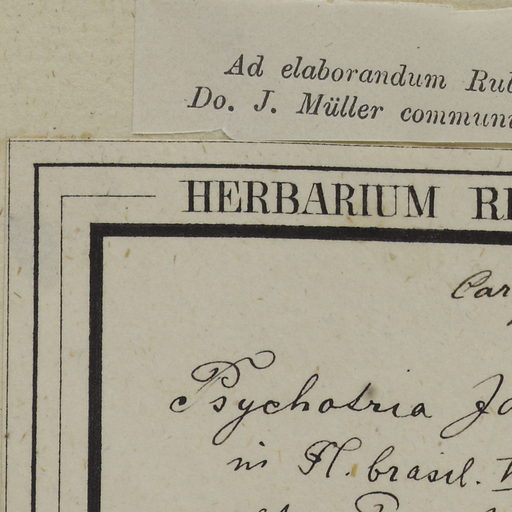 Ad elaborandum Rub
Do. J. Müller commun
HERBARIUM RE
Car
Psychotria Ja
in Fl. brasil.